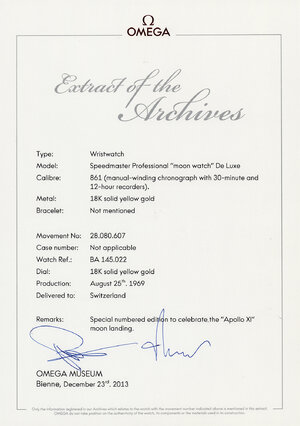 Ω
OMEGA
Extract of the
Archives
Type: Wristwatch
Model: Speedmaster Professional "moon watch" De Luxe
Calibre: 861 (manual-winding chronograph with 30-minute and
12-hour recorders).
Metal: 18K solid yellow gold
Bracelet: Not mentioned
Movement No: 28.080.607
Case number: Not applicable
Watch Ref.: BA 145.022
Dial: 18K solid yellow gold
Production: August 25th, 1969
Delivered to: Switzerland
Remarks: Special numbered edition to celebrate the "Apollo XI"
moon landing.
OMEGA MUSEUM
Bienne, December 23rd, 2013
Only the information registered in our Archives which relates to the watch with the movement number indicated above is mentioned in this extract.
OMEGA do not take position on the authenticity of the watch, its components or the materials used in its construction.